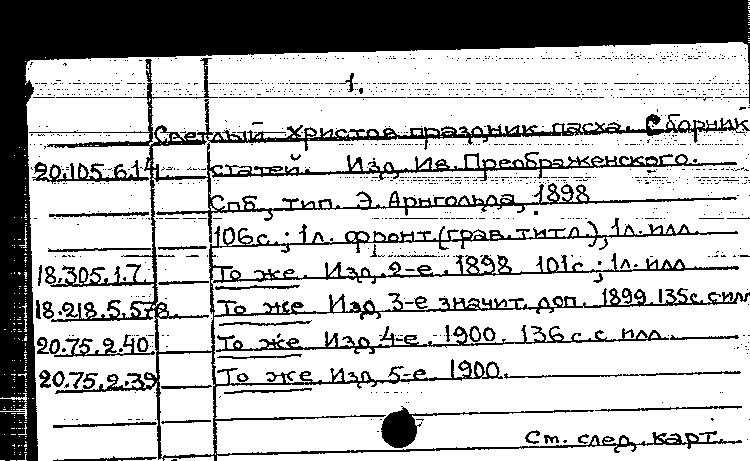 1.
Светлый Христов праздник пасха. Сборник
20.105.6.14 статей. Изд. Ив. Преображенского.
Спб., тип. Э. Арнгольда, 1898
106с.; 1л. фронт.(грав.титл.), 1л. илл.
18.305.1.7. То же. Изд. 2-е. 1898 101с.; 1л. илл
18.218.5.578. То же Изд. 3-е значит. доп. 1899. 135с. с илл
20.75.2.40. То же Изд. 4-е. 1900. 136 с. с илл.
20.75.2.39 То же. Изд. 5-е 1900.
См. след. карт.